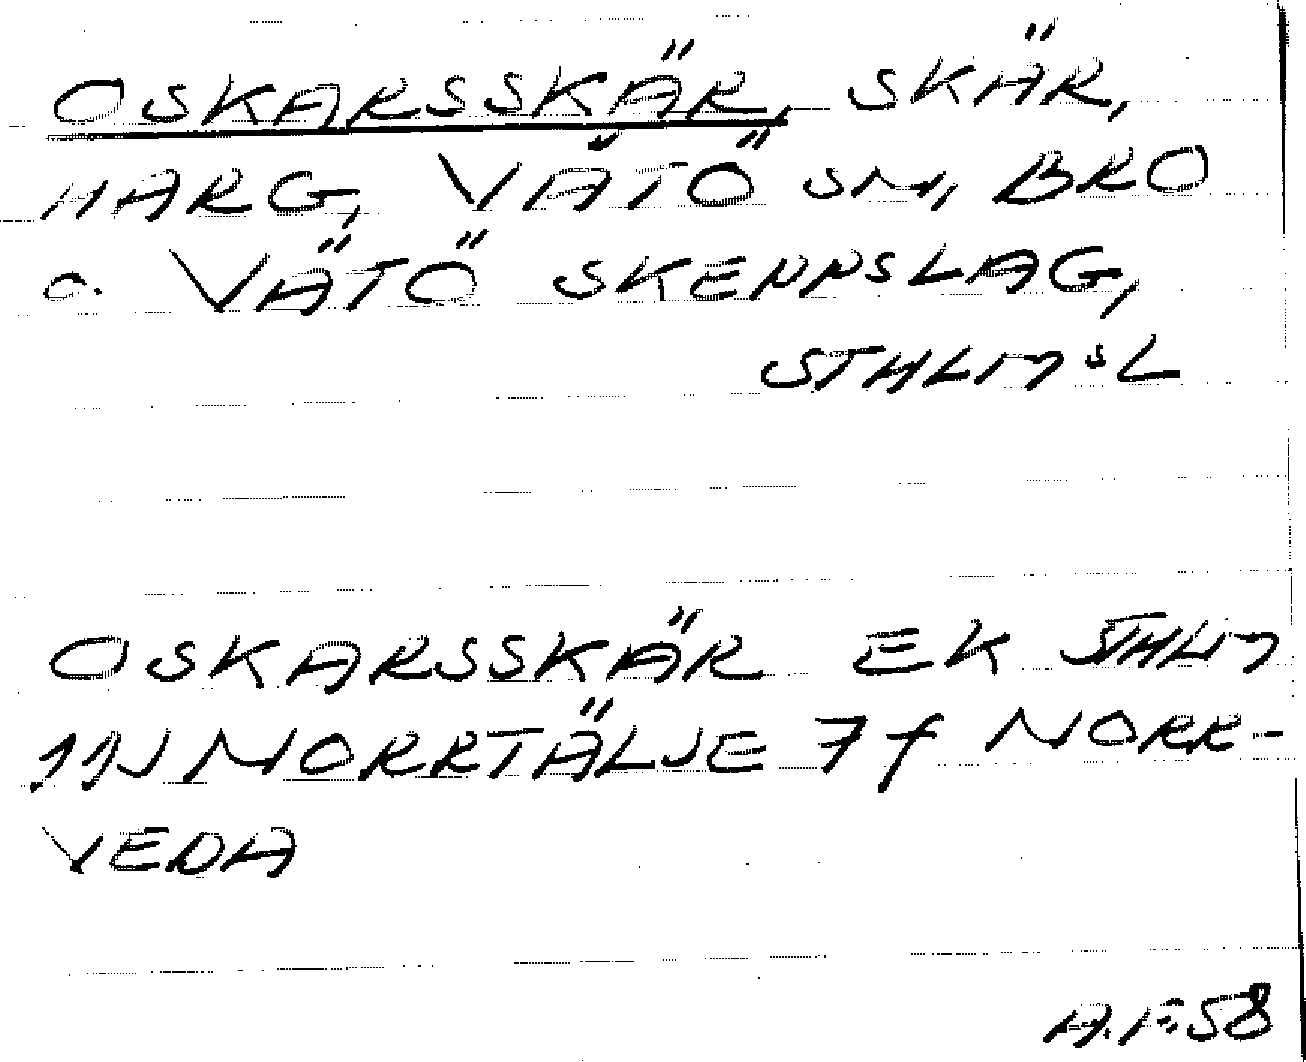 OSKARSSKÄR, SKÄR,
HARG, VÄTÖ SN, BRO
O. VÄTÖ SKEPPSLAG,
STHLMSL
OSKARSSKÄR EK STHLM
11J NORRTÄLJE 7f NORR-
VEDA
A.F.58